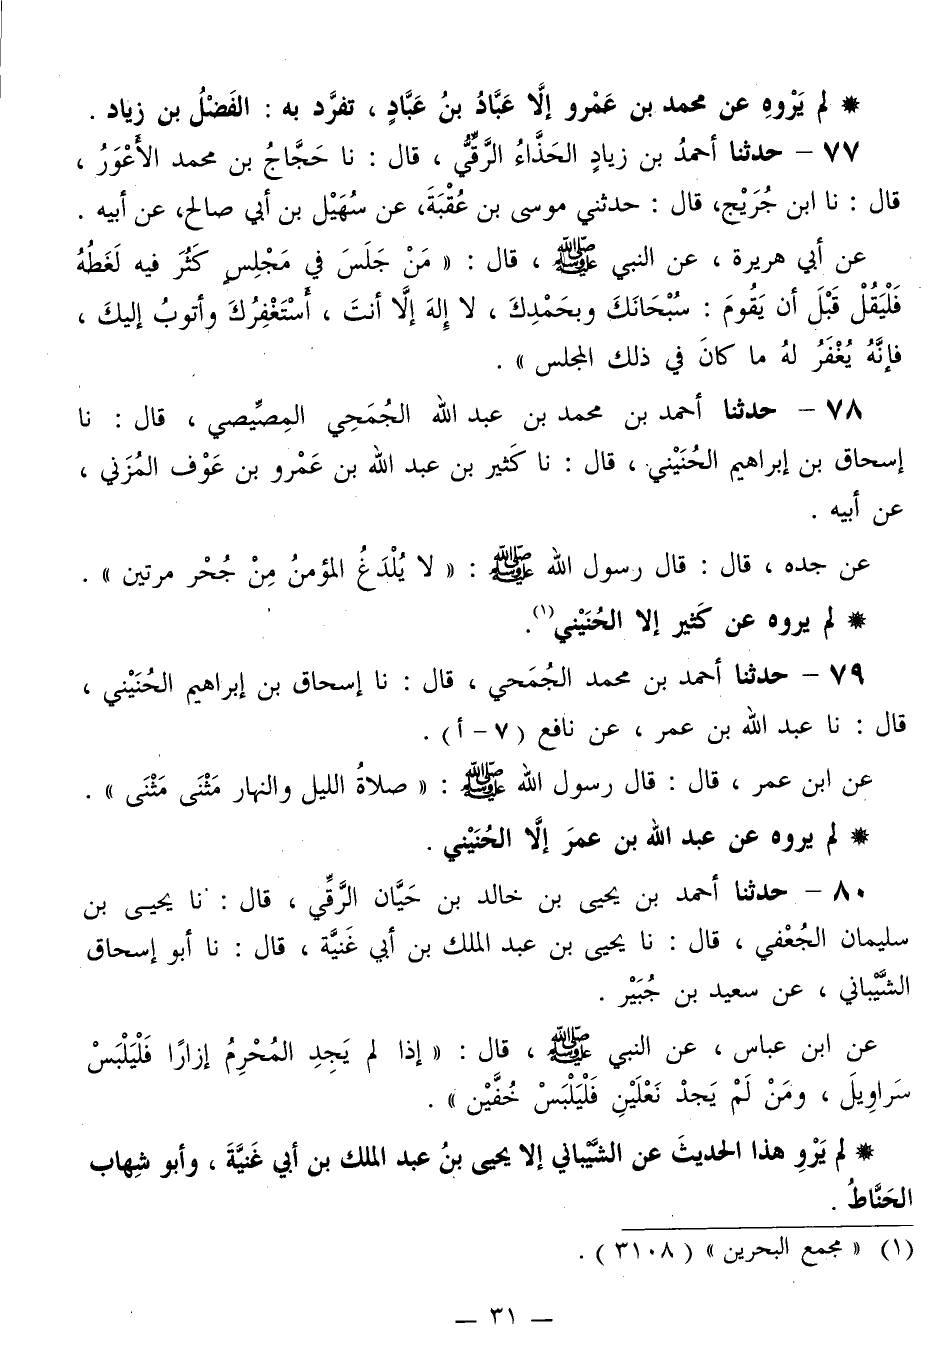 * لم يَرْوِهِ عن محمد بن عَمْرو إلَّا عَبَّادُ بنُ عَبَّادٍ ، تفرَّد به : الفَضْلُ بن زياد .
٧٧ – حدثنا أحمدُ بن زيادٍ الحَذَّاءُ الرَّقِّيُّ ، قال : نا حَجَّاجُ بن محمد الأَعْوَرُ ،
قال : نا ابن جُرَيْج، قال : حدثني موسى بن عُقْبَةَ، عن سُهَيْل بن أبي صالح، عن أبيه .
عن أبي هريرة ، عن النبي ﷺ ، قال : « مَنْ جَلَسَ في مَجْلِسٍ كَثُرَ فيه لَغَطُهُ
فَلْيَقُلْ قَبْلَ أن يَقُومَ : سُبْحَانَكَ وبحَمْدِكَ ، لا إلهَ إلَّا أنتَ ، أَسْتَغْفِرُكَ وأتوبُ إليكَ ،
فإنَّهُ يُغْفَرُ لهُ ما كانَ في ذلك المجلس » .
٧٨ – حدثنا أحمد بن محمد بن عبد الله الجُمَحِي المِصِّيصي ، قال : نا
إسحاق بن إبراهيم الحُنَيْني ، قال : نا كَثير بن عبد الله بن عَمْرو بن عَوْف المُزَني ،
عن أبيه .
عن جده ، قال : قال رسول الله ﷺ : « لا يُلْدَغُ المؤمنُ مِنْ جُحْر مرتين » .
* لم يروه عن كَثير إلا الحُنَيْني(١).
٧٩ – حدثنا أحمد بن محمد الجُمَحي ، قال : نا إسحاق بن إبراهيم الحُنَيْني ،
قال : نا عبد الله بن عمر ، عن نافع ( ٧ – أ ) .
عن ابن عمر ، قال : قال رسول الله ﷺ : « صلاةُ الليل والنهار مَثْنَى مَثْنَى » .
* لم يروه عن عبد الله بن عمرَ إلَّا الحُنَيْني .
٨٠ – حدثنا أحمد بن يحيى بن خالد بن حَيَّان الرَّقِّي ، قال : نا يحيى بن
سليمان الجُعْفي ، قال : نا يحيى بن عبد الملك بن أبي غَنيَّة ، قال : نا أبو إسحاق
الشَّيْباني ، عن سعيد بن جُبَيْر .
عن ابن عباس ، عن النبي ﷺ ، قال : « إذا لم يَجِدِ المُحْرِمُ إزارًا فَلْيَلْبَسْ
سَراوِيلَ ، ومَنْ لَمْ يَجدْ نَعْلَيْنِ فَلْيَلْبَسْ خُفَّيْن » .
* لم يَرْوِ هذا الحديثَ عن الشَّيْباني إلا يحيى بنُ عبد الملك بن أبي غَنيَّةَ ، وأبو شِهاب
الحَنَّاطُ .
(١) « مجمع البحرين » ( ٣١٠٨ ) .
— ٣١ —